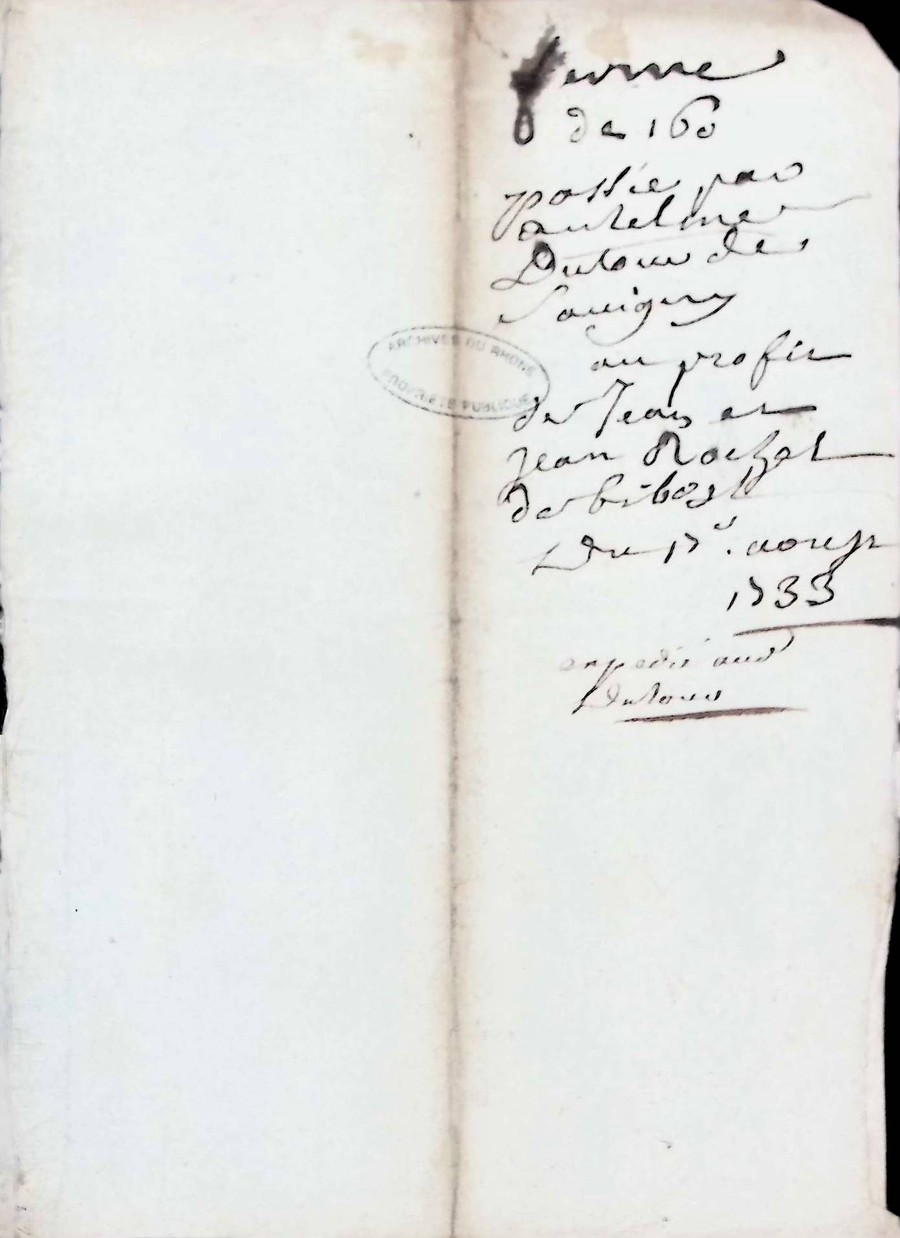 ferme
de 160
passée par
antelme
Dutour de
Savigny
au profit
de Jean et
Jean Rochet
de bibost
Du 17e. aoust
1733
expedié aud
Dutour
ARCHIVES DU RHONE
PROPRIÉTÉ PUBLIQUE